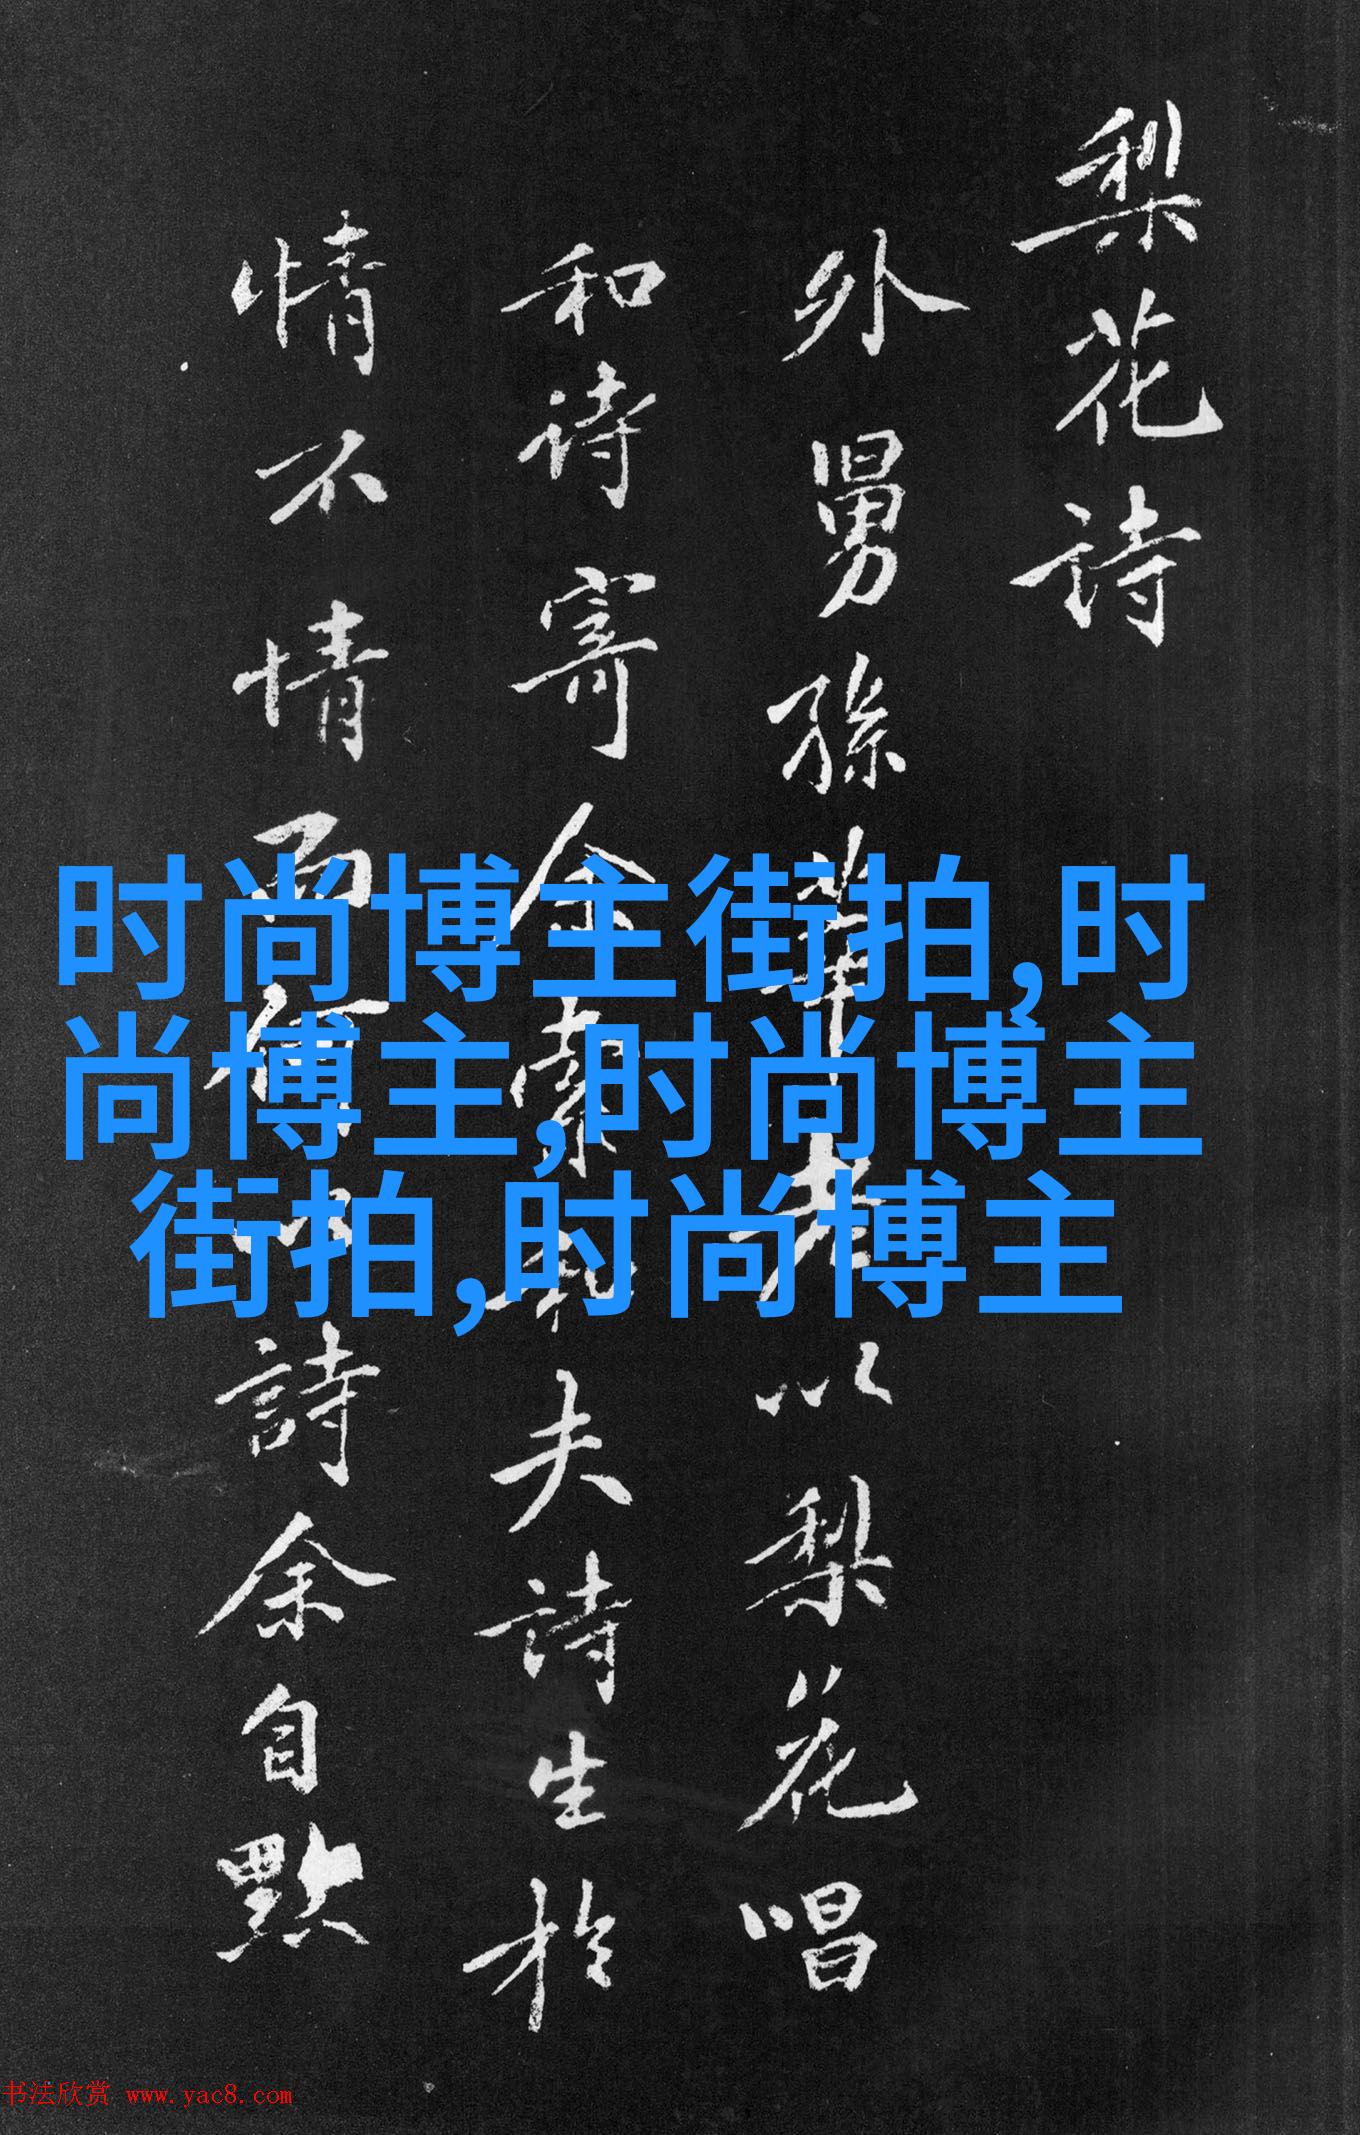 梨花詩
外舅孫莘老以梨花唱
和诗寄余索和夫诗生於
情不情而何以詩余自點
时尚博主街拍,时
尚博主,时尚博主
街拍,时尚博主
书法欣赏 www.yac8.com